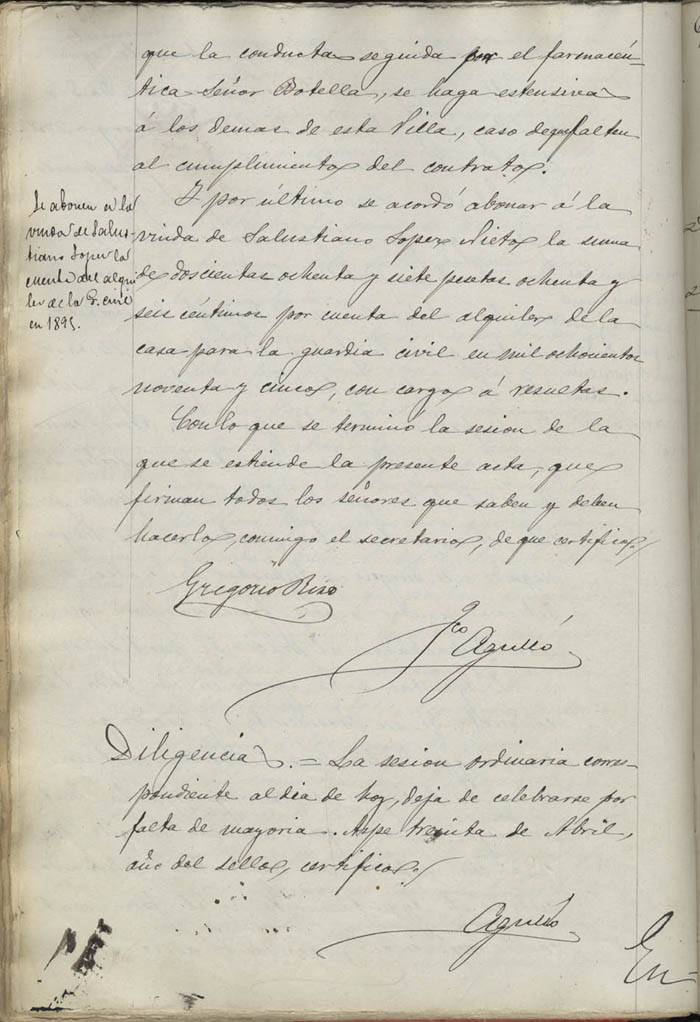 que la conducta seguida por el farmacéu-
tica Señor Botella, se haga estensiva
á los demas de esta Villa, caso de que falten
al cumplimiento del contrato.
Y por último se acordó abonar á la
viuda de Salustiano Lopez Nieto la suma
de doscientas ochenta y siete pesetas ochenta y
seis céntimos por cuenta del alquiler de la
casa para la guardia civil en mil ochocientos
noventa y cinco, con cargo á resultas.
Se abonen á la
viuda de Salus-
tiano Lopez la
cuenta del alqui
ler de la G. civil
en 1895.
Con lo que se terminó la sesion de la
que se estiende la presente acta, que
firman todos los señores que saben y deben
hacerlo, conmigo el secretario, de que certifico.
Gregorio Rizo
Fco Agulló
Diligencia. = La sesion ordinaria corres-
pondiente al dia de hoy, deja de celebrarse por
falta de mayoria. Aspe treinta de Abril,
año del sello, certifico.
Agulló
En-